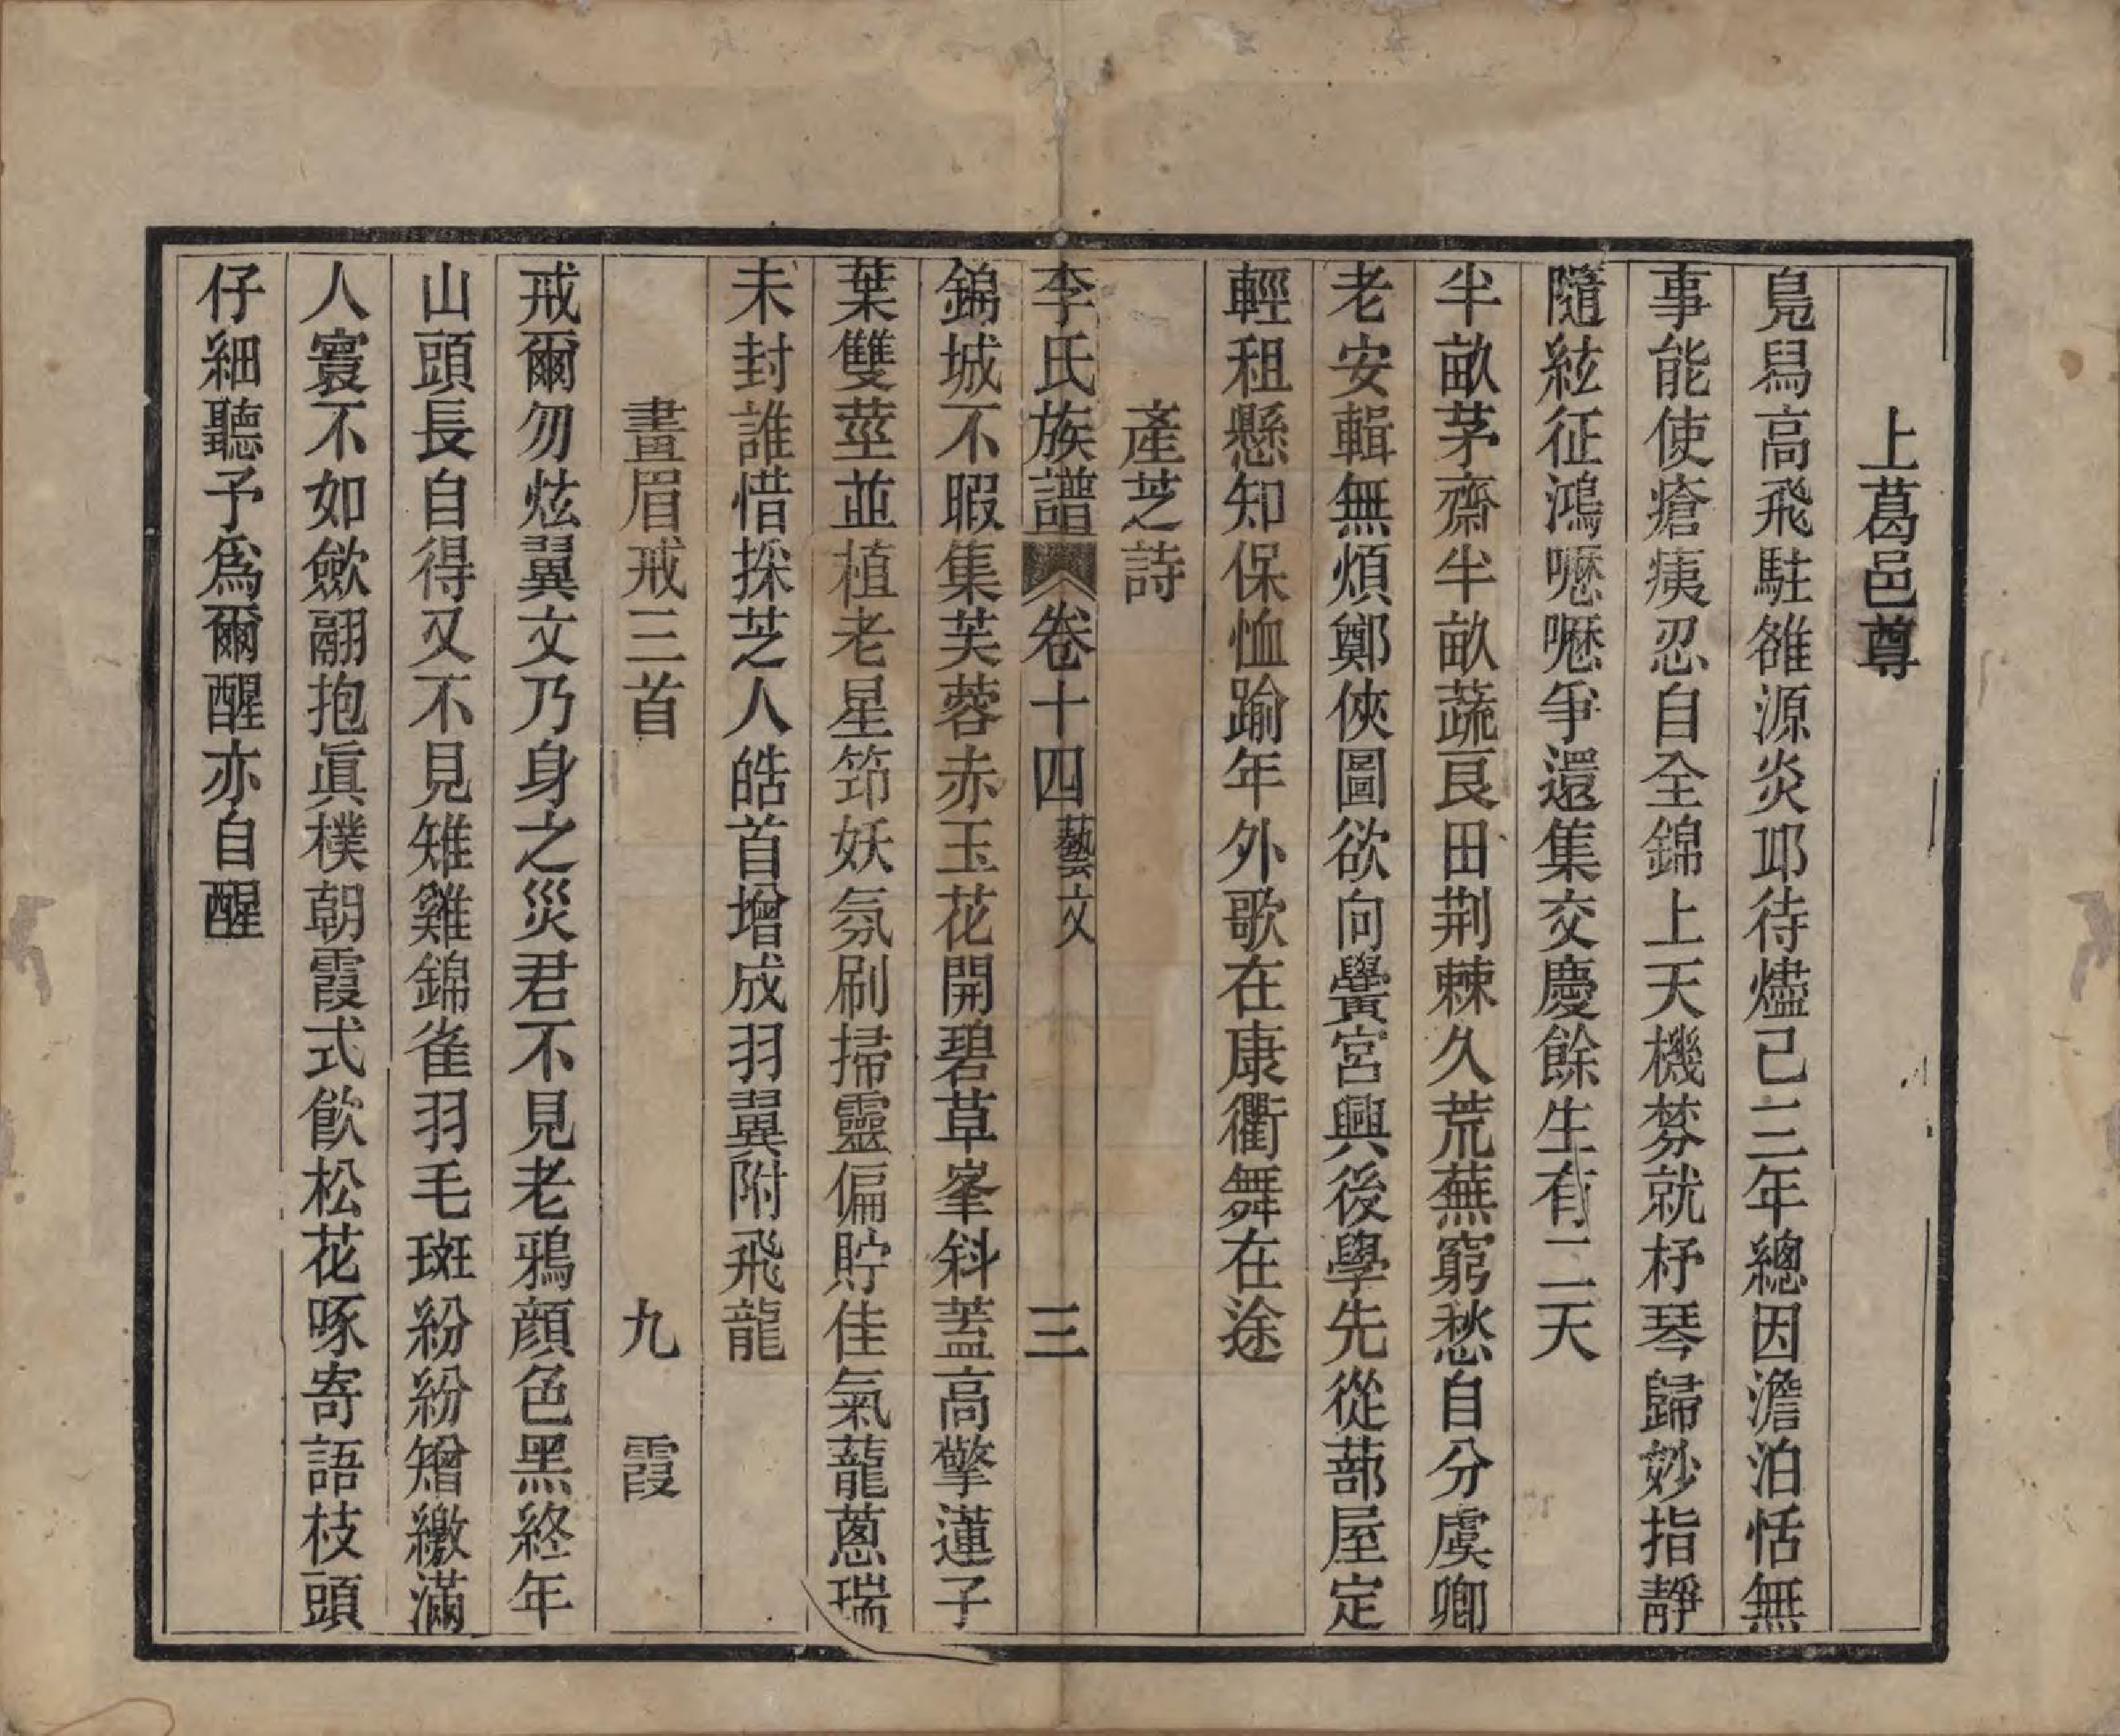 上葛邑尊
鳬舄高飛駐雒源炎邛待燼己三年總因澹泊恬無
事能使瘡痍忍自全錦上天機棼就杼琴歸妙指靜
隨絃征鴻嚦嚦爭還集交慶餘生有二天
半畝茅齋半畝蔬艮田荆棘久荒蕪窮愁自分虞卿
老安輯無煩鄭俠圖欲向黌宮興後學先從蔀屋定
輕租懸知保恤踰年外歌在康衢舞在途
產芝詩
李氏族譜 卷十四 藝文 三
錦城不暇集芙蓉赤玉花開碧草峯斜蓋高擎蓮子
葉雙莖並植老星筇妖氛刷掃靈偏貯佳氣蘢蔥瑞
未封誰惜採芝人皓首增成羽翼附飛龍
畫眉戒三首 九霞
戒爾勿炫翼文乃身之災君不見老鴉顏色黑終年
山頭長自得又不見雉雞錦雀羽毛斑紛紛矰繳滿
人寰不如歛翮抱眞樸朝霞式飲松花啄寄語枝頭
仔細聽予爲爾醒亦自醒